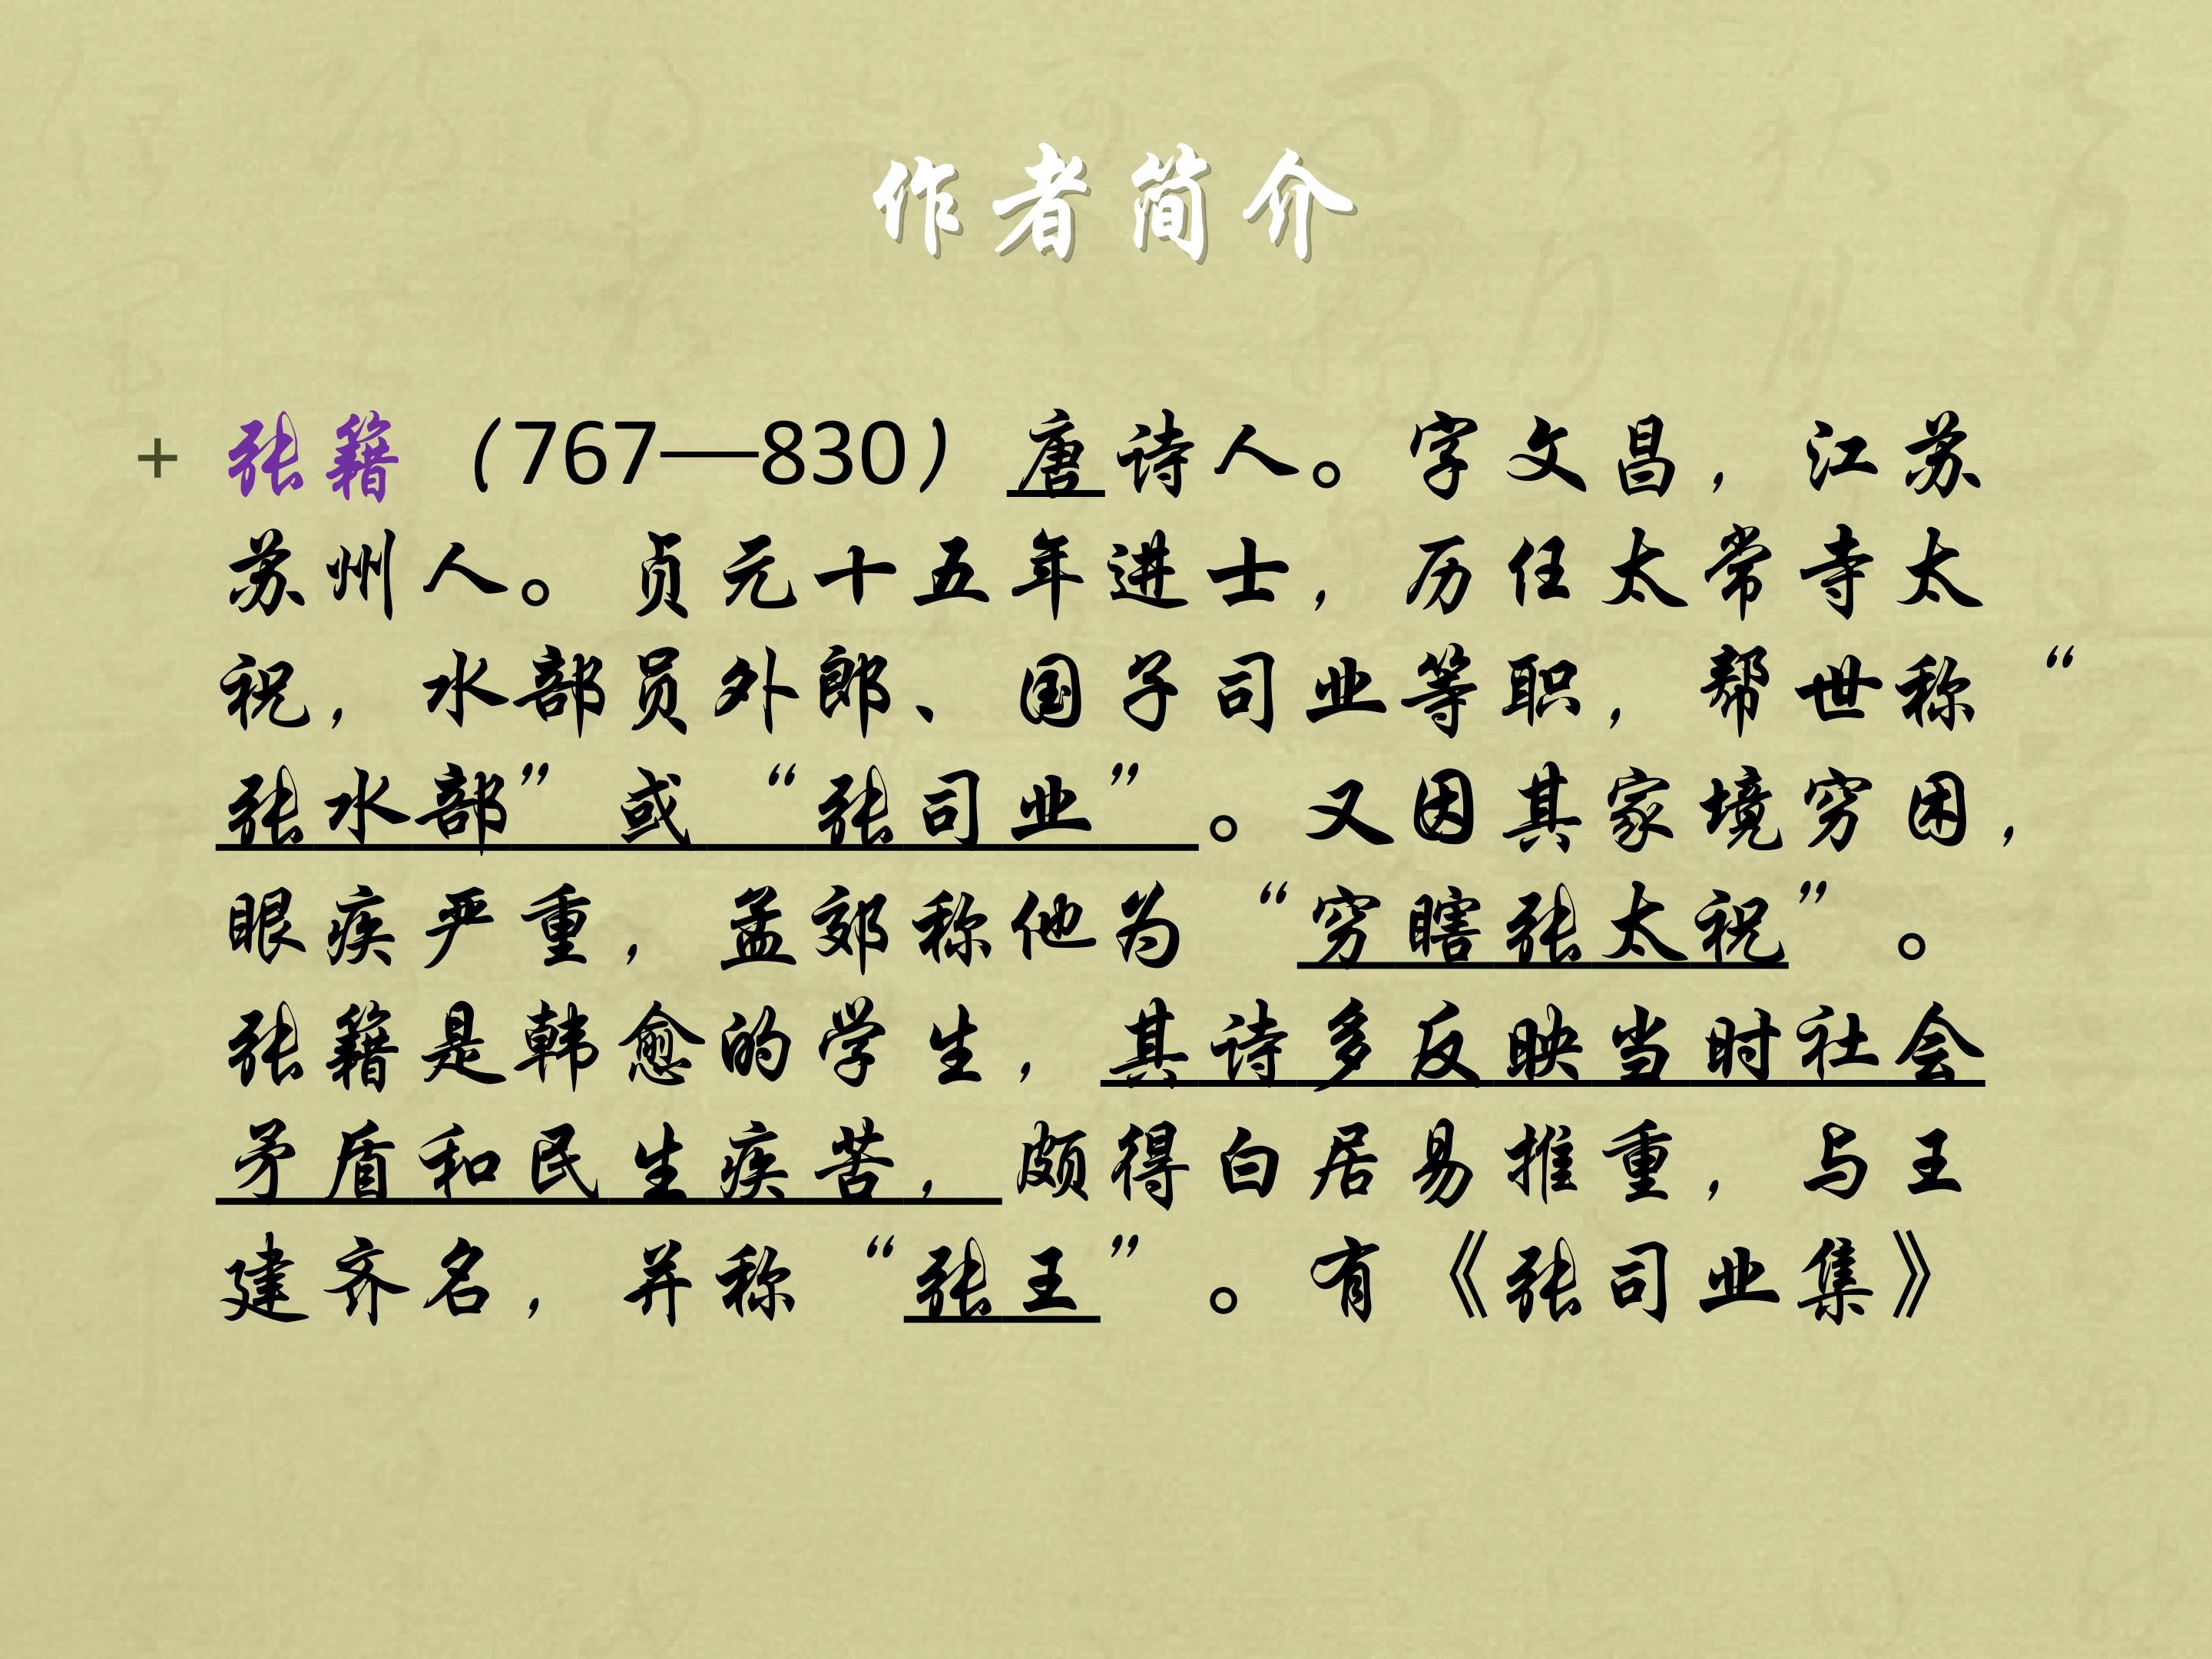 作者简介
+ 张籍（767—830）唐诗人。字文昌，江苏
苏州人。贞元十五年进士，历任太常寺太
祝，水部员外郎、国子司业等职，帮世称“
张水部”或“张司业”。又因其家境穷困，
眼疾严重，孟郊称他为“穷瞎张太祝”。
张籍是韩愈的学生，其诗多反映当时社会
矛盾和民生疾苦，颇得白居易推重，与王
建齐名，并称“张王”。有《张司业集》